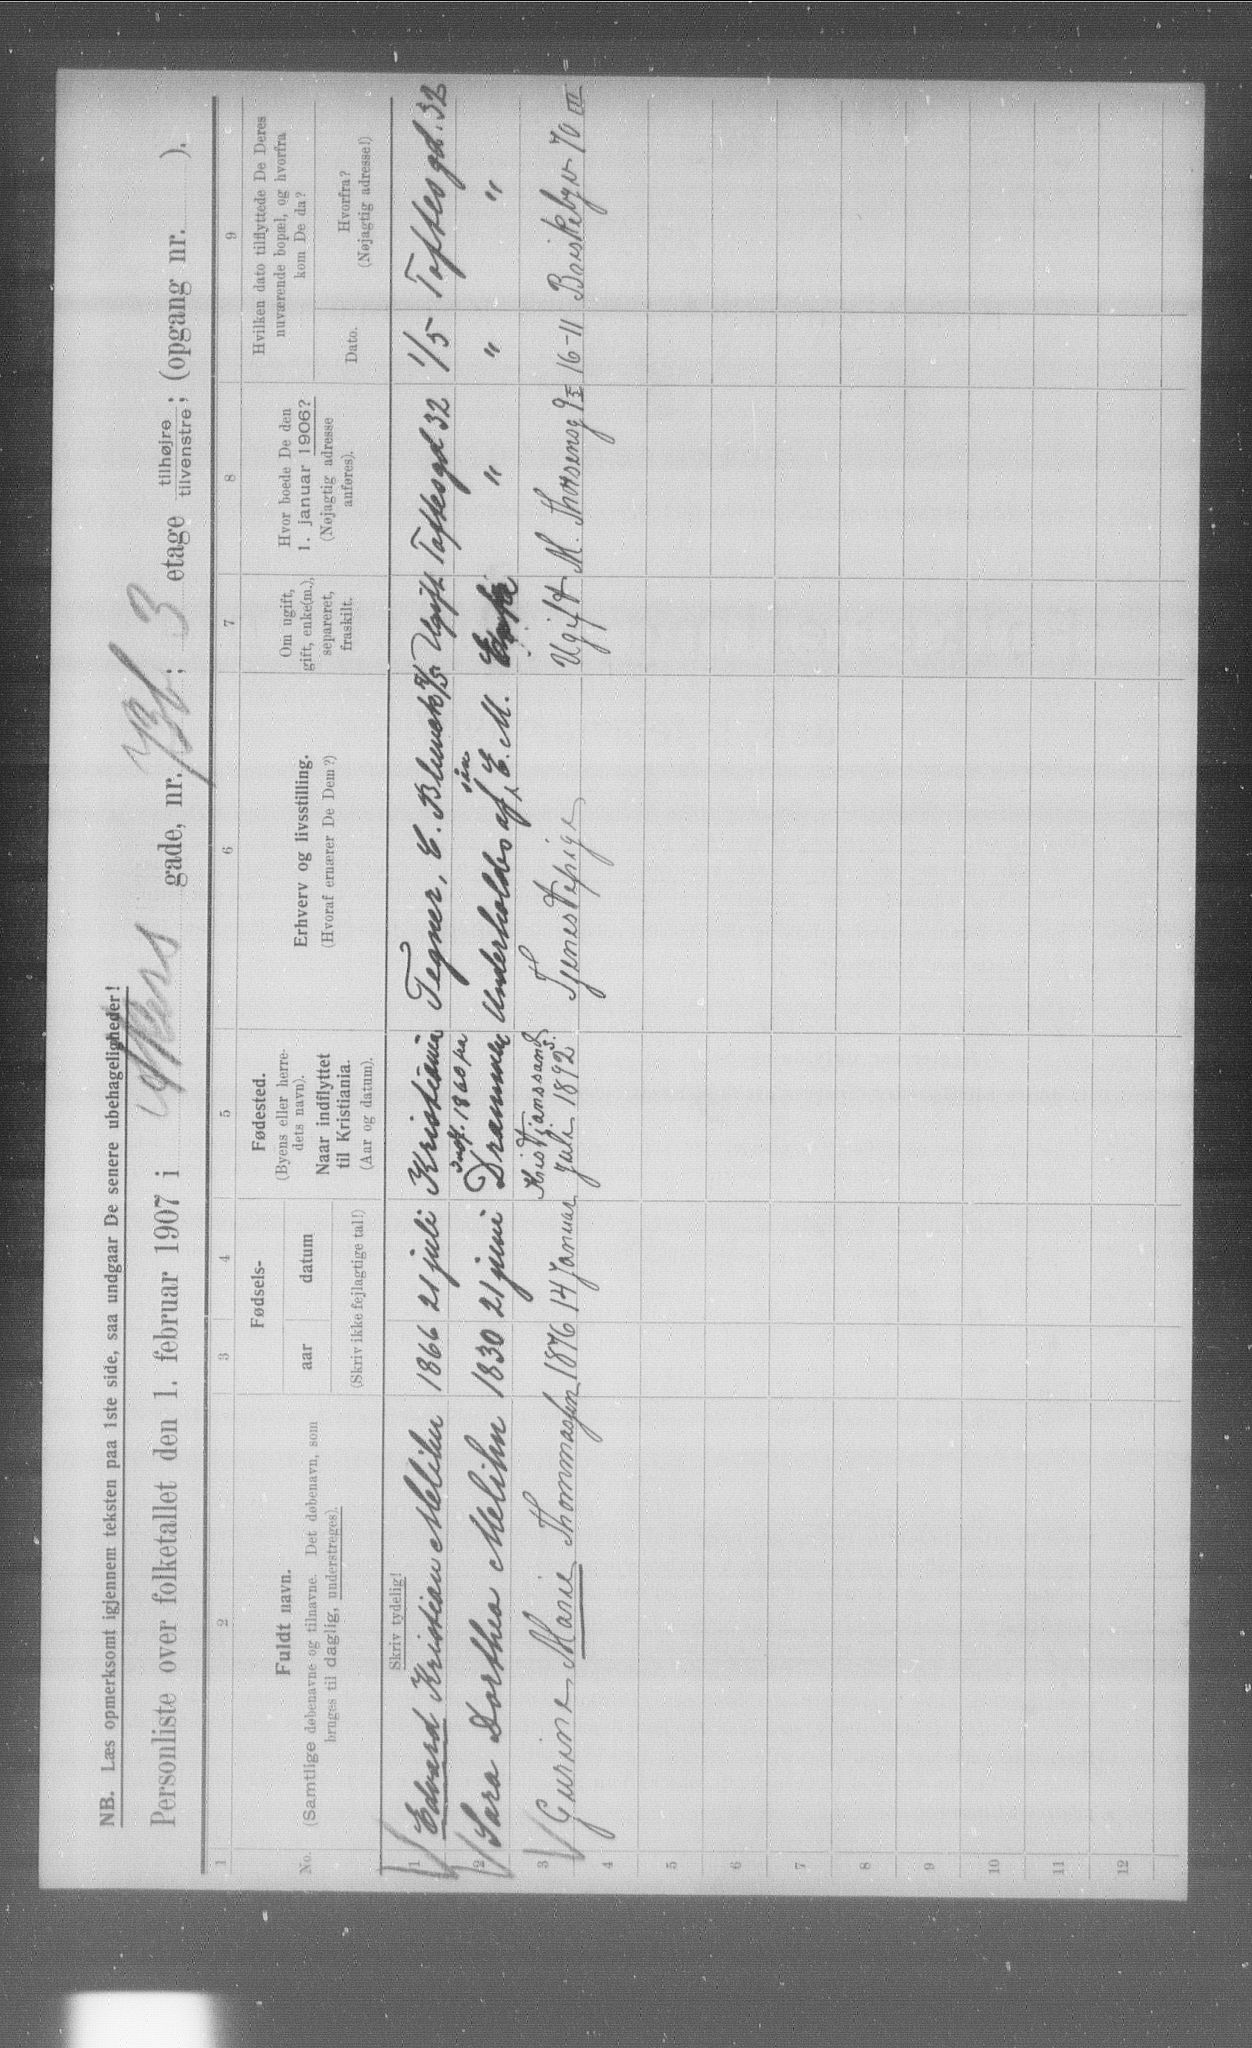 NB. Læs opmerksomt igjennem teksten paa 1ste side, saa undgaar De senere ubehageligheder!
Personliste over folketallet den 1. februar 1907 i Akers gade, nr. 73b; 3 etage tilhøjre / tilvenstre; (opgang nr. ).
1 2 3 4 5 6 7 8 9
No.
Fuldt navn.
(Samtlige døbenavne og tilnavne. Det døbenavn, som bruges til daglig, understreges).
Fødsels-
aar datum
(Skriv ikke fejlagtige tal!)
Fødested.
(Byens eller herredets navn).
Naar indflyttet til Kristiania.
(Aar og datum).
Erhverv og livsstilling.
(Hvoraf ernærer De Dem?)
Om ugift, gift, enke(m.), separeret, fraskilt.
Hvor boede De den 1. januar 1906?
(Nøjagtig adresse anføres).
Hvilken dato tilflyttede De Deres nuværende bopæl, og hvorfra kom De da?
Dato.
Hvorfra?
(Nøjagtig adresse!)
Skriv tydelig!
1 Edvard Kristian Melihn 1866 21 juli Kristiania Tegner, Ugift Toftesgd 32 1/5 Toftesgd. 32
2 Sara Dorthea Melihn 1830 21 juni Drammen Underholdes af sin E. M. Enke " " "
3 Gurine Marie Thommasen 1876 14 Januar Kristianssand S. Juli 1892 Tjenestepige Ugift M. Thorsensg 9 I 16-11 Briskebyv 70 III
4
5
6
7
8
9
10
11
12